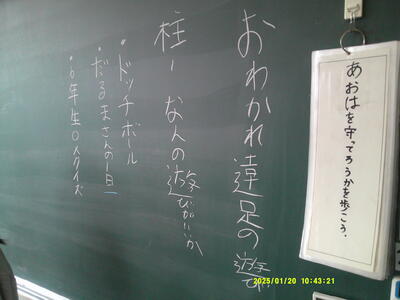 おわかれ遠足の遊び
柱ーなんの遊びがいいか
•ドッチボール
•だるまさんの1日
•6年生〇×クイズ
あおはを守ってろうかを歩こう。
2025/01/20 10:43:21